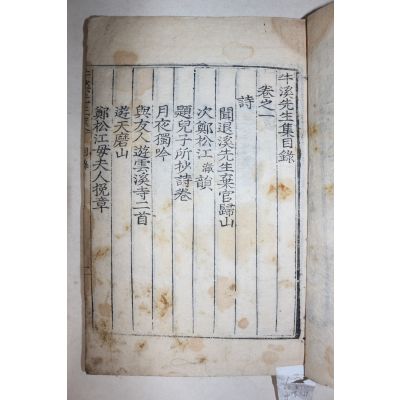 牛溪先生集目錄
卷之一
詩
聞退溪先生棄官歸山
次鄭松江澈韻
題兒子所抄詩卷
月夜獨吟
與友人遊雲溪寺二首
遊天磨山
鄭松江母夫人挽章